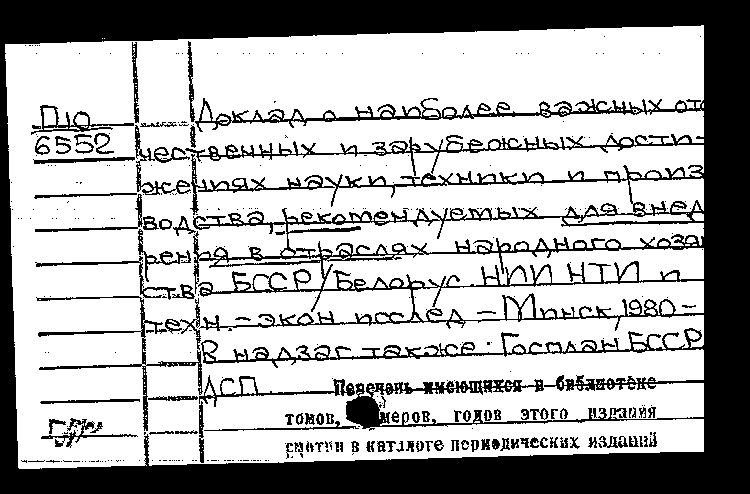 П10
6552
Доклад о наиболее важных оте
чественных и зарубежных дости-
жениях науки, техники и произ
водства, рекомендуемых для внед
рения в отраслях народного хозя
ства БССР/Белорус. НИИ НТИ и
техн.-экон исслед - Минск, 1980 -
В надзаг также: Госплан БССР
ДСП
Перечень имеющихся в библиотеке
томов, номеров, годов этого издания
смотри в каталоге периодических изданий